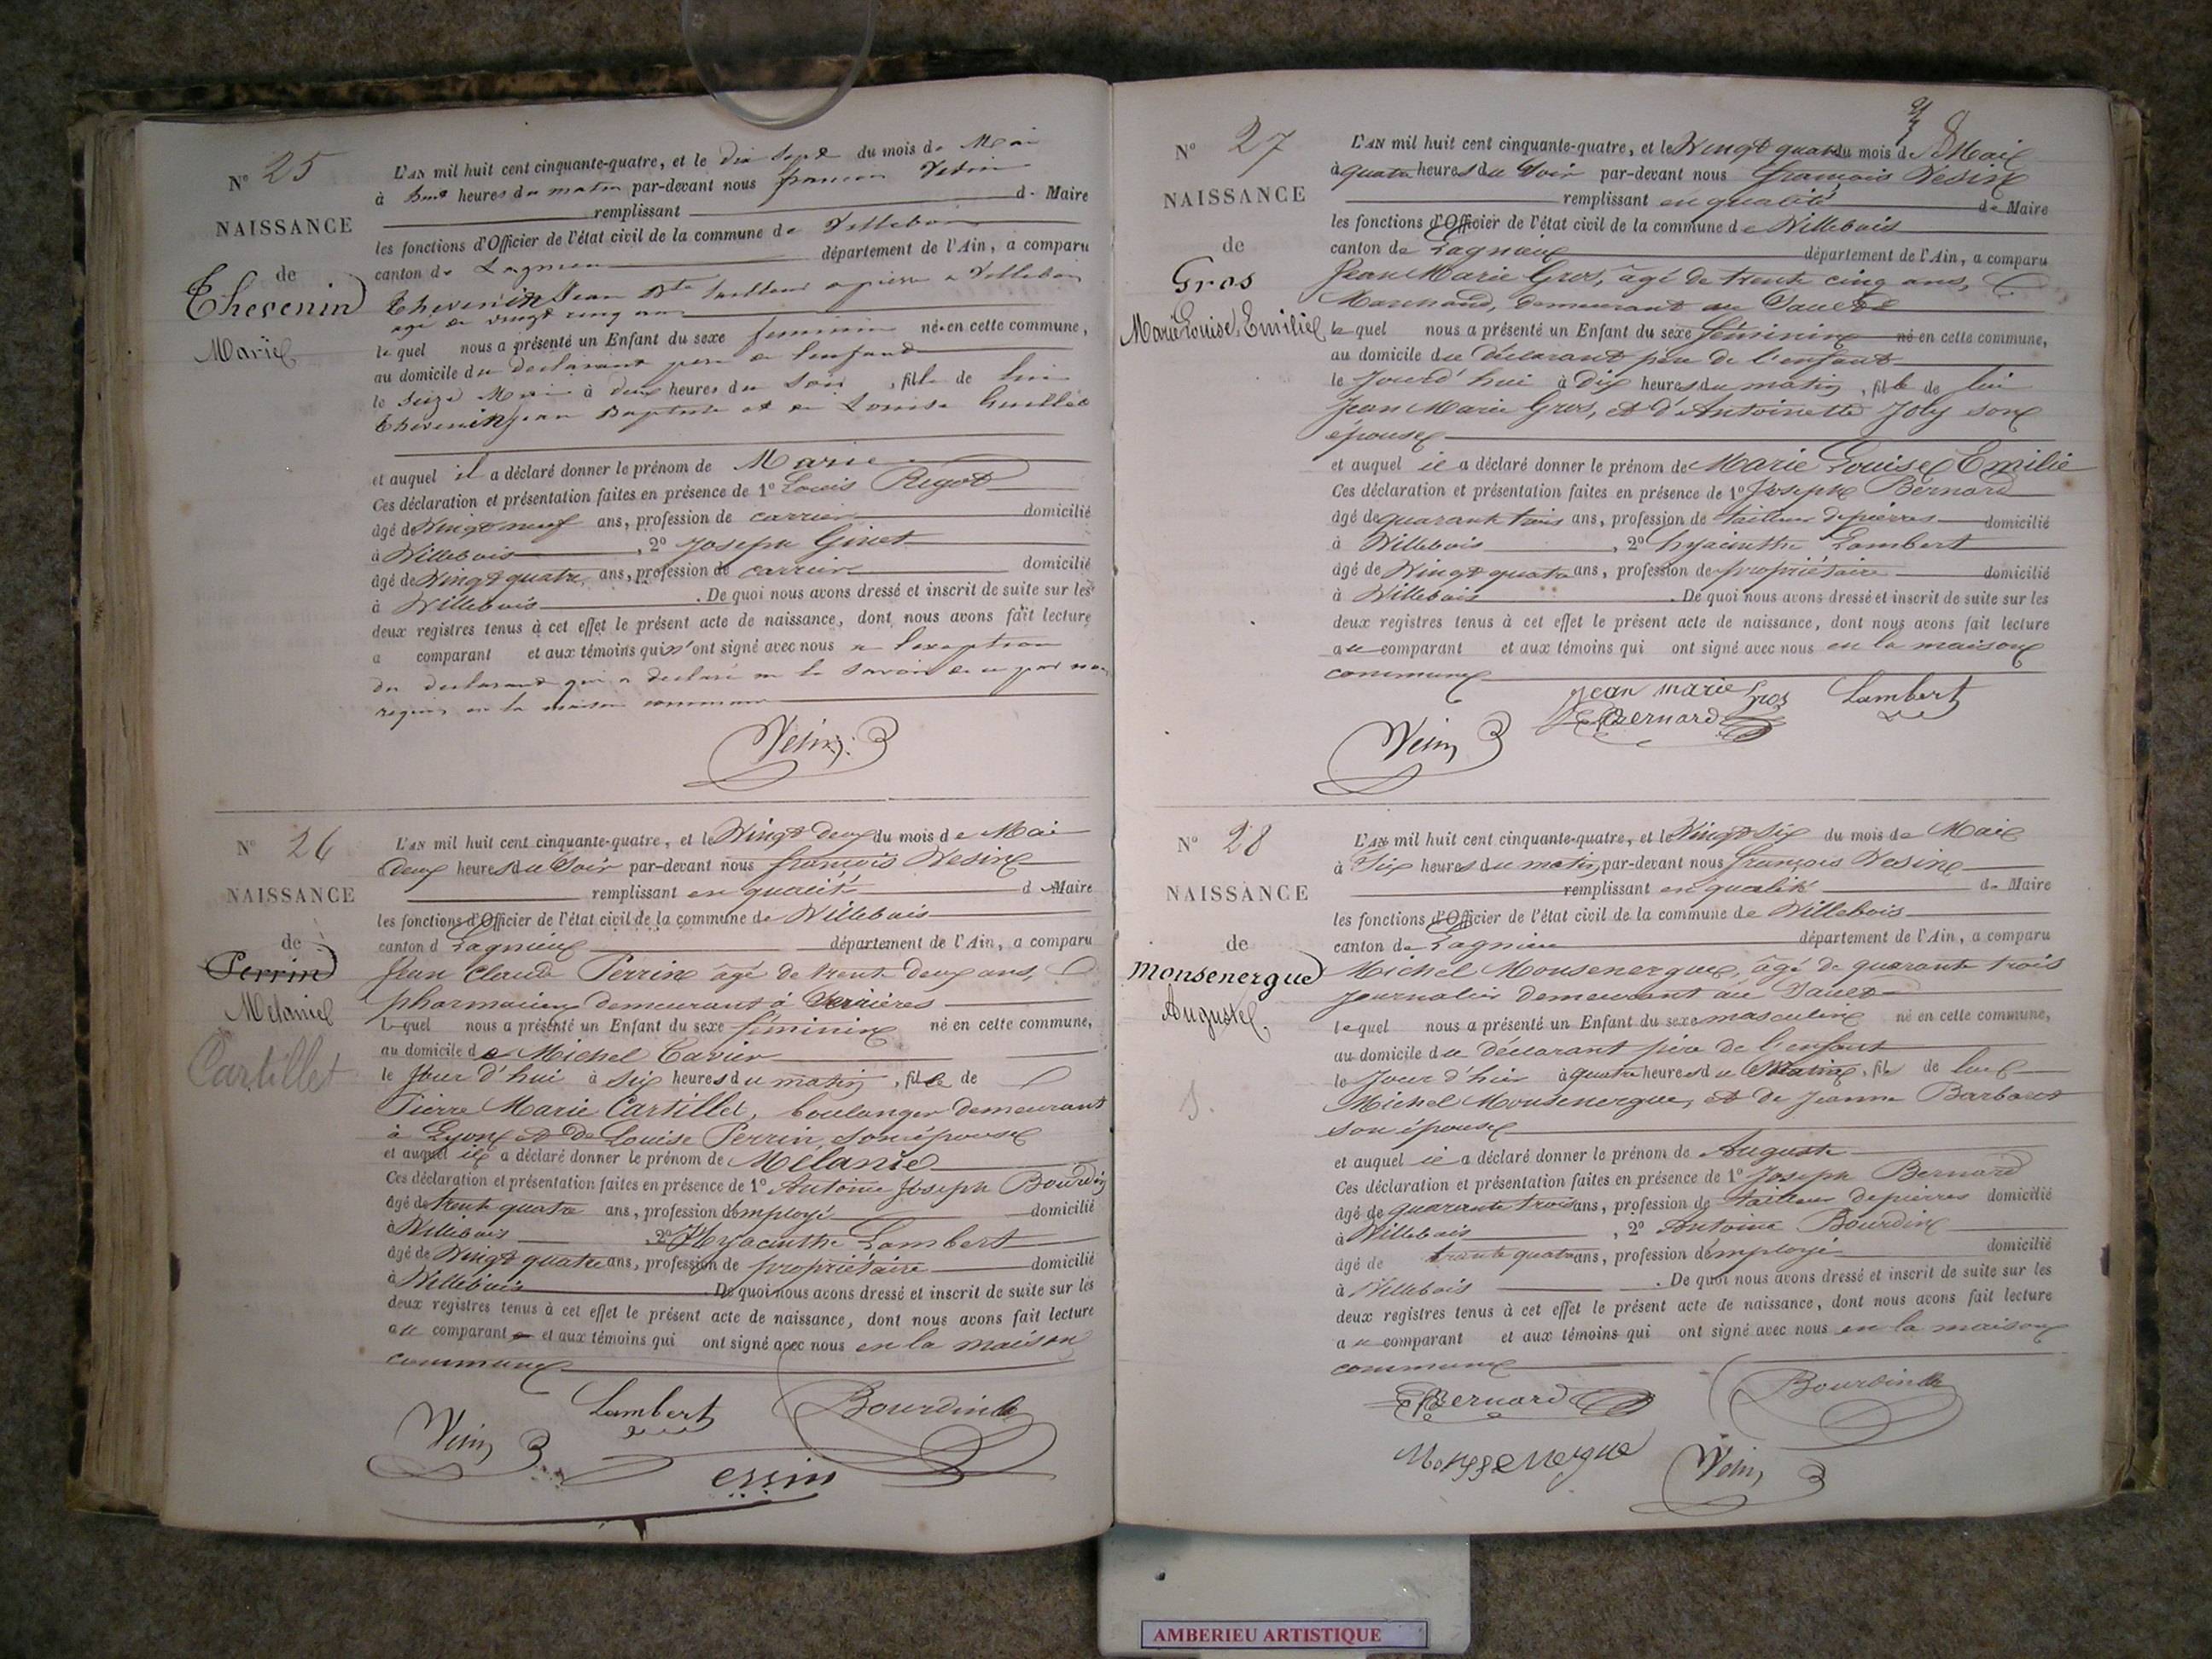 N° 25
NAISSANCE
de
Thevenin
Marie
L'AN mil huit cent cinquante-quatre, et le dix sept du mois de Mai
à huit heures du matin par-devant nous francois Vesin
remplissant de Maire
les fonctions d'Officier de l'état civil de la commune de Villebois
canton de Lagnieu département de l'Ain, a comparu
Thevenin Jean Bte tailleur a pierre a Villebois
age de vingt cinq ans
lequel nous a présenté un Enfant du sexe feminin né en cette commune,
au domicile du declarant pere de lenfant
le Seize Mai à deux heures du Soir, fille de lui
Thevenin Jean Baptiste et de Louise
et auquel il a déclaré donner le prénom de Marie
Ces déclaration et présentation faites en présence de 1° Louis Rigot
âgé de Vingt neuf ans, profession de carrier domicilié
à Villebois, 2° Joseph Ginet
âgé de Vingt quatre ans, profession de carrier domicilié
à Villebois. De quoi nous avons dressé et inscrit de suite sur les
deux registres tenus à cet effet le présent acte de naissance, dont nous avons fait lecture
a comparant et aux témoins qui n'ont signé avec nous a lexeption
du declarant qui a declaré ne le Savoir de ce par nous
requis en la maison commune
Vesin
N° 26
NAISSANCE
de
Perrin
Melanie
Cartillet
L'AN mil huit cent cinquante-quatre, et le Vingt deux du mois de Mai
à deux heures du Soir par-devant nous françois Vesin
remplissant en qualité de Maire
les fonctions d'Officier de l'état civil de la commune de Villebois
canton d Lagnieu département de l'Ain, a comparu
Jean Claude Perrin âgé de trente deux ans,
pharmacien demeurant à Serrières
lequel nous a présenté un Enfant du sexe féminin né en cette commune,
au domicile de Michel Cavier
le Jour d'hui à six heures du matin, fille de
Pierre Marie Cartillet, boulanger demeurant
à Lyon et de Louise Perrin, son épouse
et auquel il a déclaré donner le prénom de Mélanie
Ces déclaration et présentation faites en présence de 1° Antoine Joseph Bourdin
âgé de trente quatre ans, profession d'employé domicilié
à Villebois, 2° Hyacinthe Lambert
âgé de Vingt quatre ans, profession de propriétaire domicilié
à Villebois. De quoi nous avons dressé et inscrit de suite sur les
deux registres tenus à cet effet le présent acte de naissance, dont nous avons fait lecture
au comparant et aux témoins qui ont signé avec nous en la maison
commune
Lambert Bourdin
Vesin
Perrin
N° 27
NAISSANCE
de
Gros
Marie Louise Emilie
L'AN mil huit cent cinquante-quatre, et le Vingt quatre du mois de Mai
à quatre heures du Soir par-devant nous françois Vesin
remplissant en qualité de Maire
les fonctions d'Officier de l'état civil de la commune de Villebois
canton de Lagnieu département de l'Ain, a comparu
Jean Marie Gros, âgé de trente cinq ans,
Marchand, demeurant au Sault
lequel nous a présenté un Enfant du sexe féminin né en cette commune,
au domicile du déclarant père de l'enfant
le Jourd'hui à dix heures du matin, fille de lui
Jean Marie Gros, et d'Antoinette Joly son
épouse
et auquel il a déclaré donner le prénom de Marie Louise Emilie
Ces déclaration et présentation faites en présence de 1° Joseph Bernard
âgé de quarante trois ans, profession de tailleur de pierres domicilié
à Villebois, 2° hyacinthe Lambert
âgé de Vingt quatre ans, profession de propriétaire domicilié
à Villebois. De quoi nous avons dressé et inscrit de suite sur les
deux registres tenus à cet effet le présent acte de naissance, dont nous avons fait lecture
au comparant et aux témoins qui ont signé avec nous en la maison
commune
jean marie Gros Lambert
Bernard
Vesin
N° 28
NAISSANCE
de
Monsenergue
Auguste
L'AN mil huit cent cinquante-quatre, et le Vingt Six du mois de Mai
à Six heures du matin, par-devant nous françois Vesin
remplissant en qualité de Maire
les fonctions d'Officier de l'état civil de la commune de Villebois
canton de Lagnieu département de l'Ain, a comparu
Michel Monsenergue, âgé de quarante trois
Journalier demeurant au Sault
lequel nous a présenté un Enfant du sexe masculin né en cette commune,
au domicile du déclarant père de l'enfant
le Jour d'hier à quatre heures du Matin, fils de lui
Michel Monsenergue, et de Jeanne Barbarot
son épouse
et auquel il a déclaré donner le prénom de Auguste
Ces déclaration et présentation faites en présence de 1° Joseph Bernard
âgé de quarante trois ans, profession de tailleur de pierres domicilié
à Villebois, 2° Antoine Bourdin
âgé de trente quatre ans, profession d'employé domicilié
à Villebois. De quoi nous avons dressé et inscrit de suite sur les
deux registres tenus à cet effet le présent acte de naissance, dont nous avons fait lecture
au comparant et aux témoins qui ont signé avec nous en la maison
commune
Bernard Bourdin
Monssenergue Vesin
AMBERIEU ARTISTIQUE